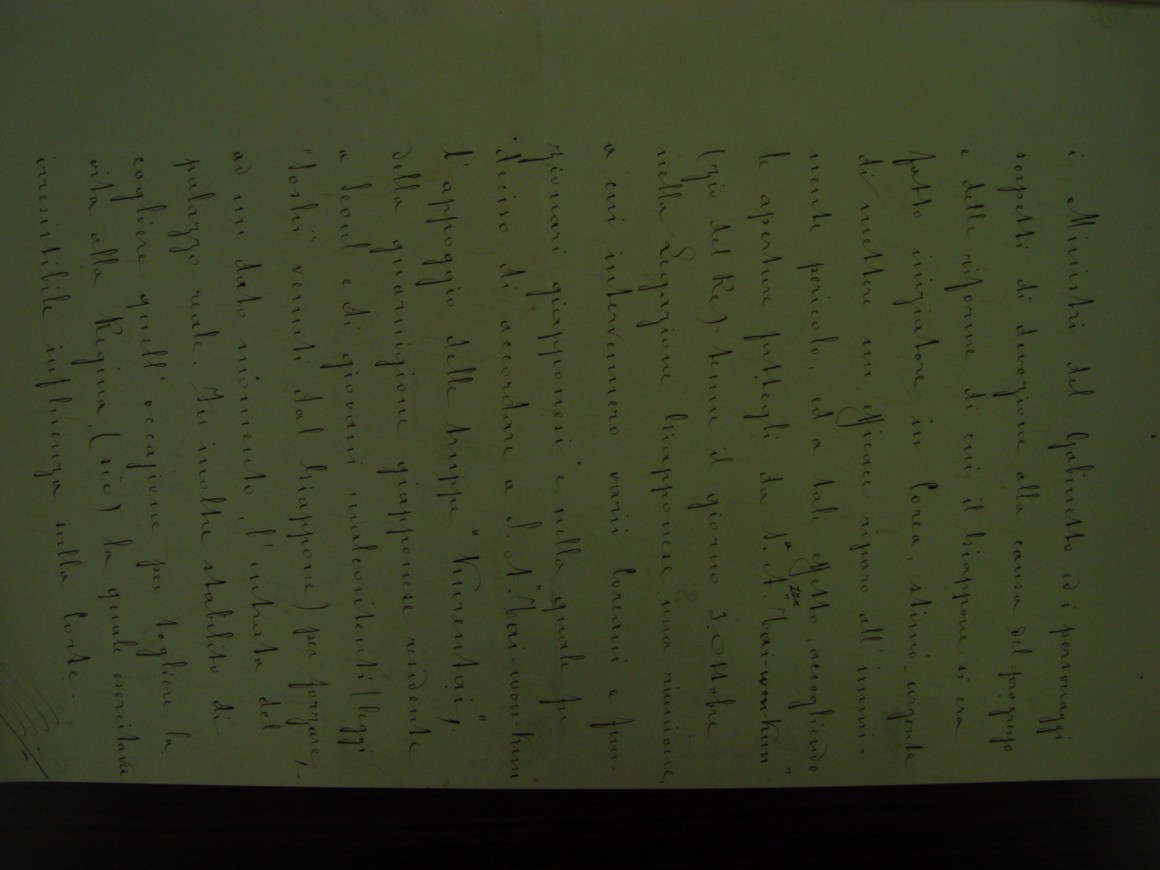 i Ministri del Gabinetto ed i personaggi
sospetti di devozione alla causa del progresso
e delle riforme di cui il Giappone si era
fatto iniziatore in Corea, stimò urgente
di mettere un efficace riparo all'immi-
nente pericolo, ed a tale effetto, accogliendo
le aperture fattegli da S. A. "Tai-won-Kun"
(zio del Re) tenne il giorno 3 Ottobre
nella Legazione Giapponese una riunione,
a cui intervennero varii Coreani e fun-
zionari giapponesi e nella quale fu
deciso di accordare a S. A. "Tai-won-Kun"
l'appoggio delle truppe "Kunrentai",
della guarnigione giapponese residente
a Seoul e di giovani malcontenti (leggi
"Soshi" venuti dal Giappone) per forzare,
ad un dato momento, l'entrata del
palazzo reale. Fu inoltre stabilito di
cogliere quell'occasione per togliere la
vita alla Regina, (sic) la quale esercitava
irresistibile influenza sulla Corte.